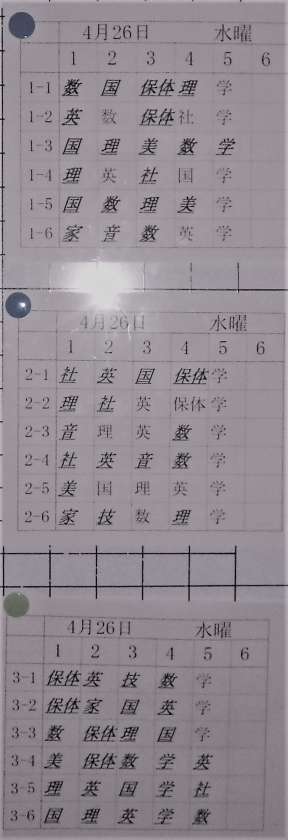 4月26日 水曜
1 2 3 4 5 6
1-1 数 国 保体 理 学
1-2 英 数 保体 社 学
1-3 国 理 美 数 学
1-4 理 英 社 国 学
1-5 国 数 理 美 学
1-6 家 音 数 英 学
4月26日 水曜
1 2 3 4 5 6
2-1 社 英 国 保体 学
2-2 理 社 英 保体 学
2-3 音 理 英 数 学
2-4 社 英 音 数 学
2-5 美 国 理 英 学
2-6 家 技 数 理 学
4月26日 水曜
1 2 3 4 5 6
3-1 保体 英 技 数 学
3-2 保体 家 国 英 学
3-3 数 保体 理 国 学
3-4 美 保体 数 学 英
3-5 理 英 国 学 社
3-6 国 理 英 学 数